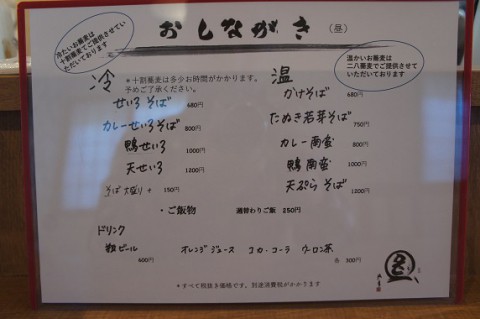 おしながき (昼)
冷たいお蕎麦は
十割蕎麦でご提供させてい
ただいております
温かいお蕎麦は
二八蕎麦でご提供させて
いただいております
冷
＊十割蕎麦は多少お時間がかかります。
予めご了承ください。
せいろそば 680円
カレーせいろそば 800円
鴨せいろ 1000円
天せいろ 1200円
そば大盛り + 150円
温
かけそば 680円
たぬき若芽そば 750円
カレー南蛮 800円
鴨南蛮 1000円
天ぷらそば 1200円
・ご飯物 週替わりご飯 250円
ドリンク
瓶ビール 600円
オレンジジュース コカ・コーラ ウーロン茶 各 300円
＊すべて税抜き価格です。別途消費税がかかります